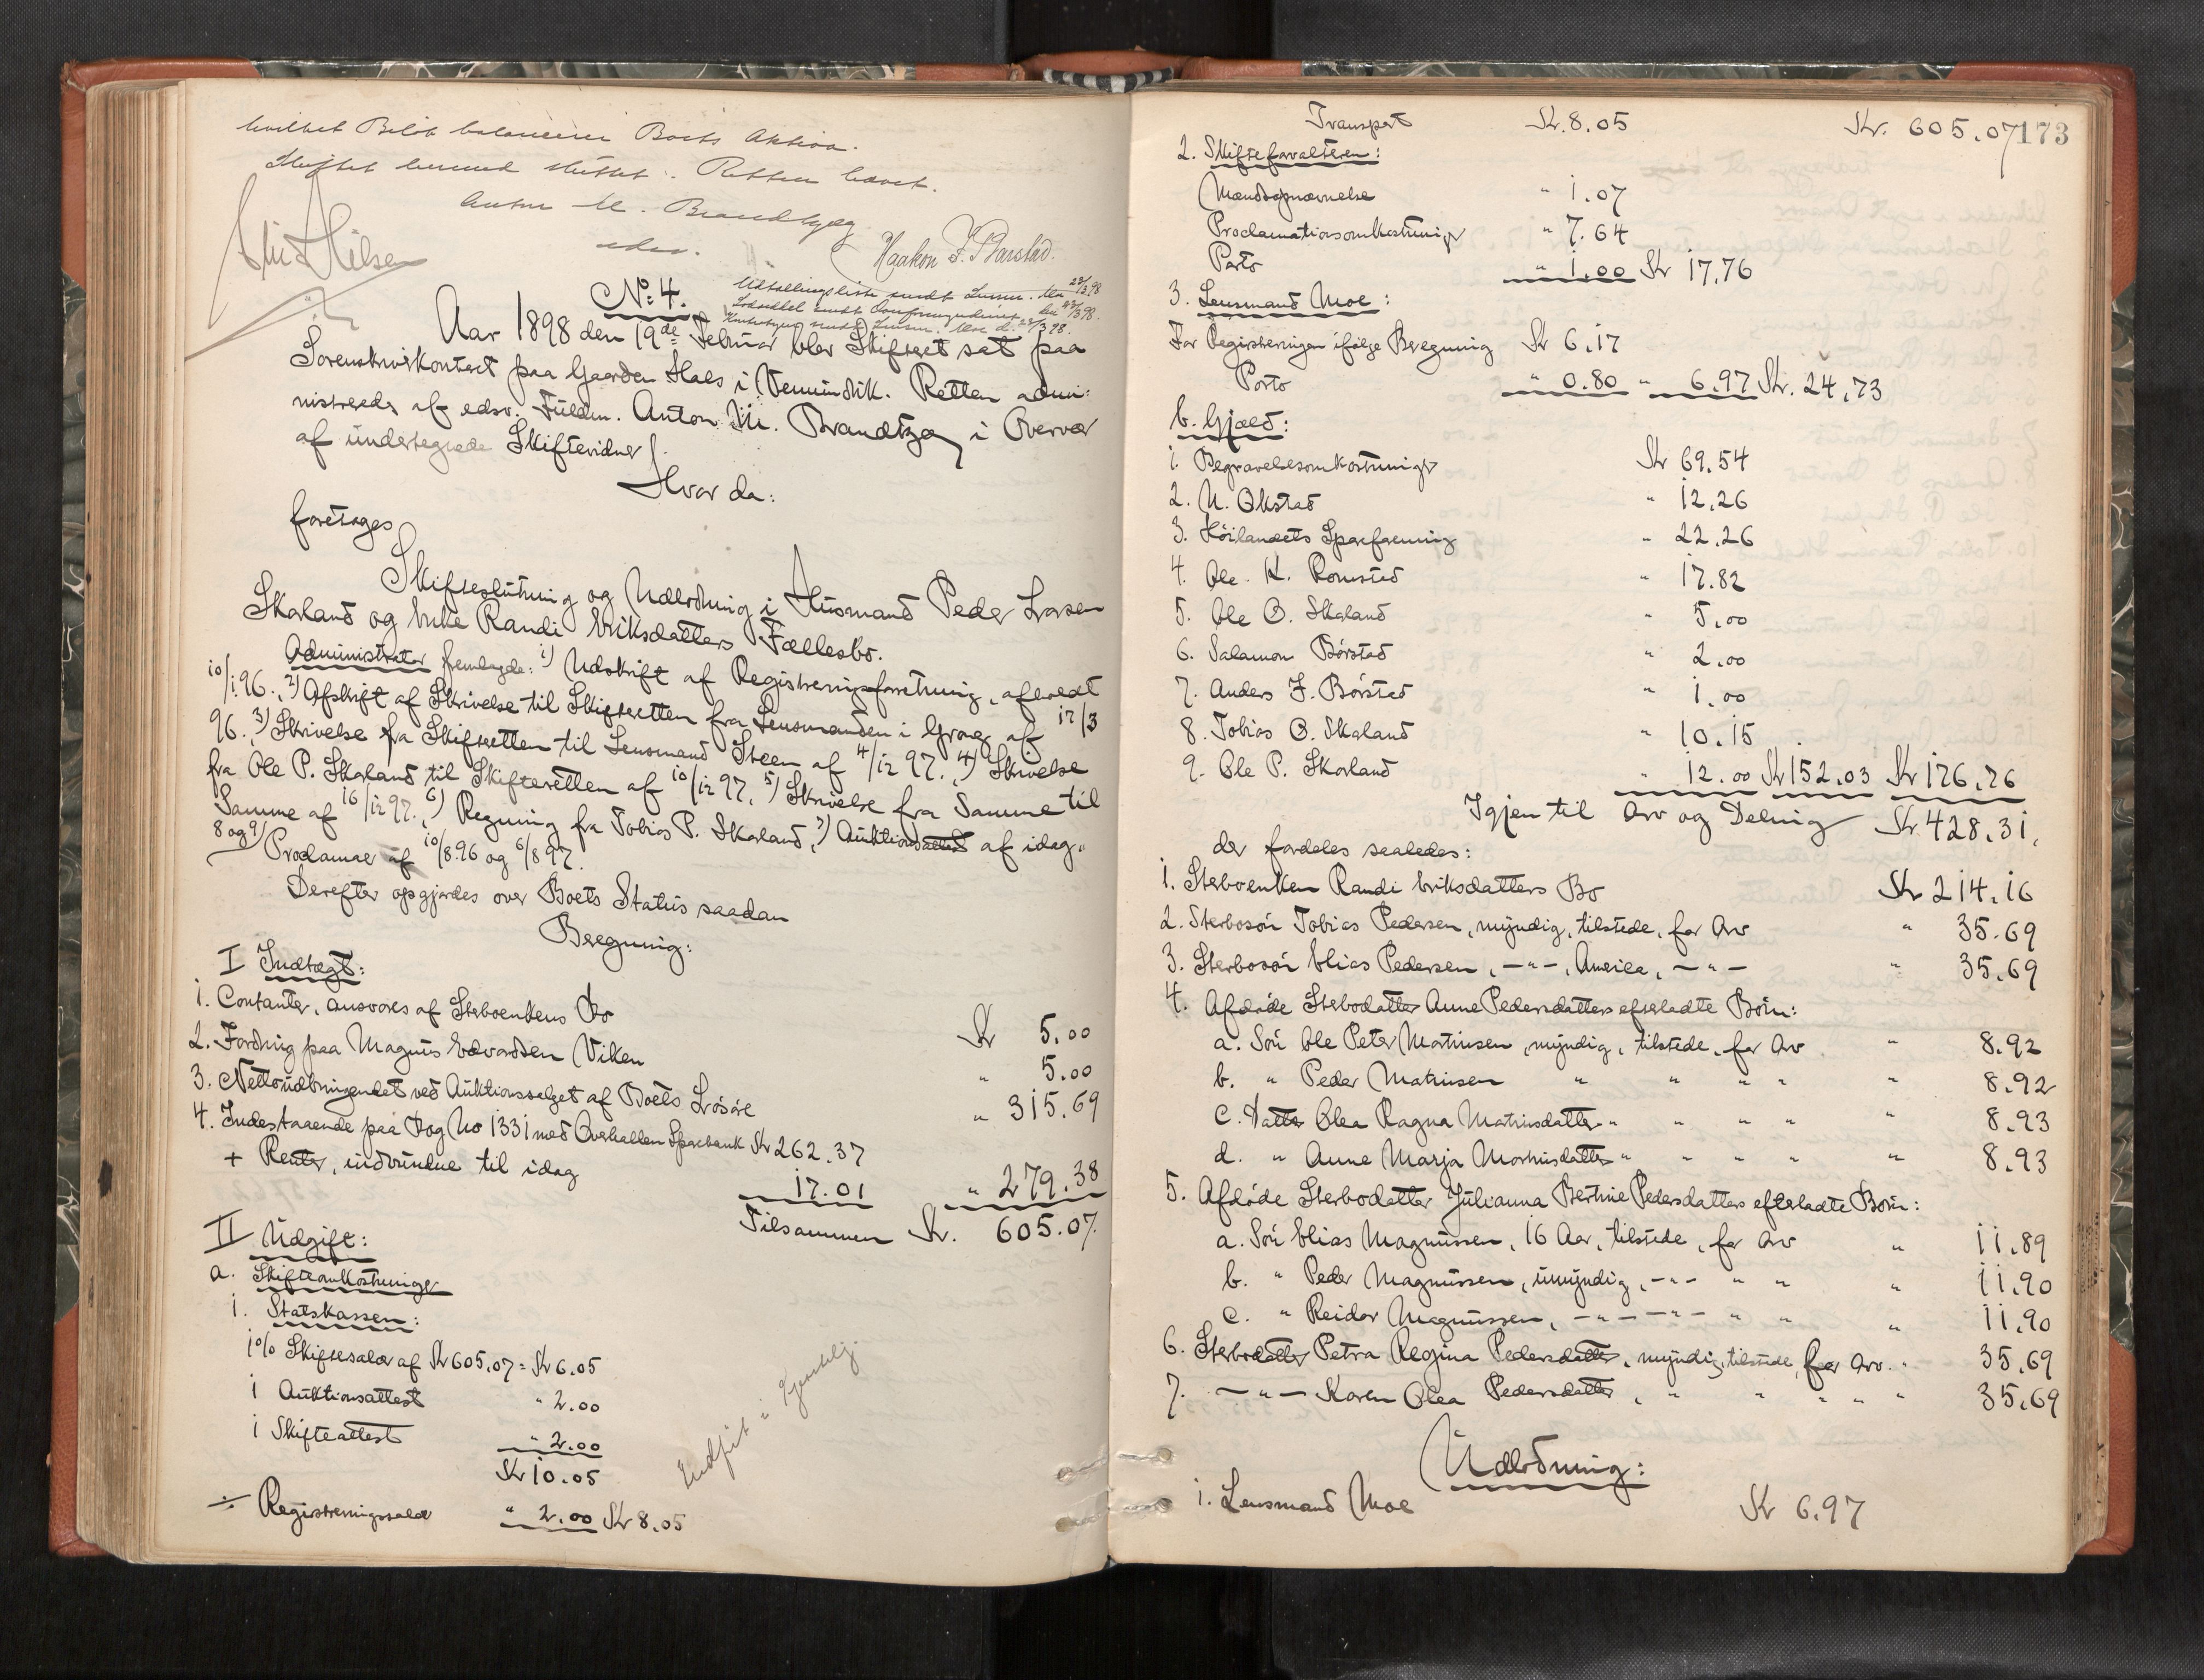 hvilket Beløb balancerer Boets Aktiva.
Skiftet hermed sluttet. Retten hævet.
Anton M. Brandtzæg
edsv.
Haakon J. Barstad.
No. 4.
Udlodningsliste sendt Lensm. Moe 23/3.98
Aar 1898 den 19de Februar blev Skifteret sat paa
Sorenskriverkontoret paa Gaarden Haes i Vemundvik. Retten admi-
nistreredes af edsv. Fuldm. Anton M. Brandtzæg i Overvær
af undertegnede Skiftevidner.
Hvor da:
foretoges
Skifteslutning og Udlodning i Husmand Peder Larsen
Skaland og Enke Randi Eriksdatters Fællesbo.
Administrator fremlagde: 1) Udskrift af Registreringsforretning, afholdt
10/1.96., 2) Afskrift af Skrivelse til Skifteretten fra Lensmanden i Grong af 17/3
96., 3) Skrivelse fra Skifteretten til Lensmand Steen af 4/12 97., 4) Skrivelse
fra Ole P. Skaland til Skifteretten af 10/12 97, 5) Skrivelse fra Samme til
Samme af 16/12 97., 6) Regning fra Tobias P. Skaland, 7) Auktionsattest af idag.
8 og 9) Proclamaer af 10/8.96 og 6/8 97.
Derefter opgjordes over Boets Status saadan
Beregning:
I Indtægt:
1. Contanter, ansvares af Sterboenkens Bo Kr 5.00
2. Fordring paa Magnus Edvardsen Viken " 5.00
3. Nettoudbringendet ved Auktionssalget af Boets Løsøre " 315.69
4. Indestaaende paa Bog No 1331 med Overhallen Sparebank Kr 262.37
+ Renter, indvundne til idag 17.01 " 279.38
Tilsammen Kr. 605.07.
II Udgift:
a. Skifteomkostninger
1. Statskassen:
1% Skiftesalær af Kr 605.07 = Kr 6.05
1 Auktionsattest " 2.00
1 Skifteattest " 2.00
Kr 10.05
÷ Registreringssalær " 2.00 Kr 8.05
173
Transport Kr. 8.05 Kr. 605.07
2. Skifteforvalteren:
Mændsopnævnelse " 1.07
Proclamationsomkostninger " 7.64
Porto " 1.00 Kr 17.76
3. Lensmand Moe:
For Registreringen ifølge Beregning Kr 6.17
Porto " 0.80 " 6.97 Kr. 24.73
b. Gjæld:
1. Begravelsesomkostninger Kr 69.54
2. N. Okstad " 12.26
3. Höilandets Spareforening " 22.26
4. Ole K. Romstad " 17.82
5. Ole O. Skaland " 5.00
6. Salamon Börstad " 2.00
7. Anders J. Börstad " 1.00
8. Tobias O. Skaland " 10.15
9. Ole P. Skarland " 12.00 Kr 152.03 Kr 176.76
Igjen til Arv og Deling Kr. 428.31.
der fordeles saaledes:
1. Sterboenken Randi Eriksdatters Bo Kr 214.16
2. Sterbosön Tobias Pedersen, myndig, tilstede, for Arv " 35.69
3. Sterbosön Elias Pedersen, — " —, America, — " — " 35.69
4. Afdöde Sterbodatter Anne Pedersdatters efterladte Börn:
a. Sön Ole Peter Mathiesen, myndig, tilstede, for Arv " 8.92
b. " Peder Mathiesen " " " " " 8.92
c. Datter Olea Ragna Mathiesdatter " " " " " 8.93
d. " Anne Marja Mathiesdatter " " " " " 8.93
5. Afdöde Sterbodatter Julianna Bertine Pedersdatters efterladte Börn:
a. Sön Elias Magnussen, 16 Aar, tilstede, for Arv " 11.89
b. " Peder Magnussen, umyndig, — " — " " " 11.90
c. " Reidar Magnussen, — " — — " — " " " 11.90
6. Sterbodatter Petra Regina Pedersdatter, myndig, tilstede, for Arv. " 35.69
7. — " — Karen Olea Pedersdatter, " " " " " 35.69
Udlodning:
1. Lensmand Moe Kr 6.97